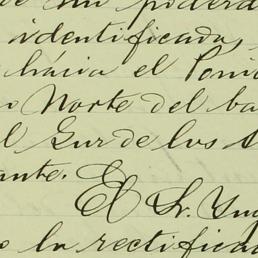 de mi poderd
identificada,
hácia el Poni
o Norte del ba
l Sur de los A
ante.
El Sr. Yng
o la rectificad